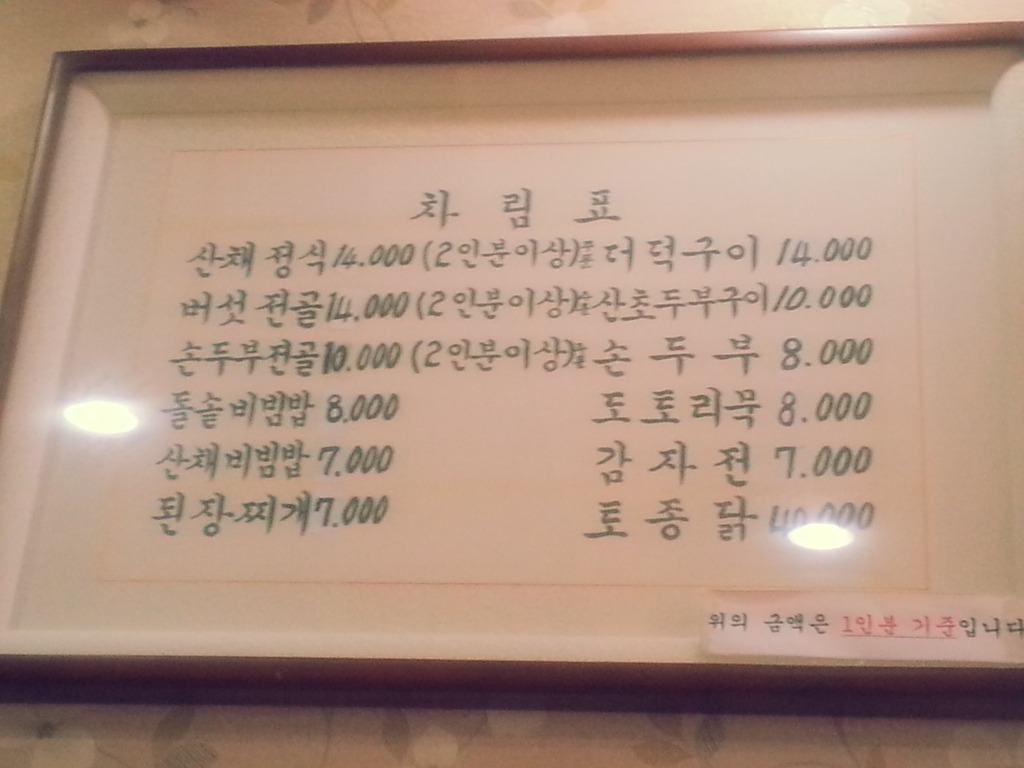 차림표
산채정식 14.000 (2인분이상) 더덕구이 14.000
버섯전골 14.000 (2인분이상) 산초두부구이 10.000
손두부전골 10.000 (2인분이상) 손두부 8.000
돌솥비빔밥 8.000 도토리묵 8.000
산채비빔밥 7.000 감자전 7.000
된장찌개 7.000 토종닭 40.000
위의 금액은 1인분 기준입니다